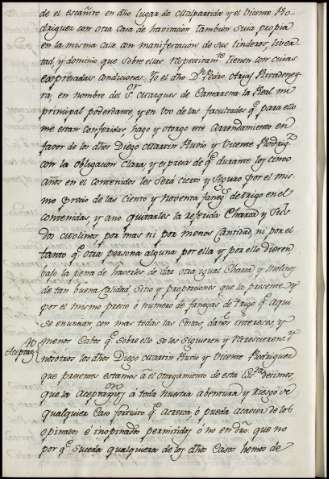 de el escañire en dho lugar de Casaparida y el Vicente Ro-
driguez con otra Casa de havitación tambien suia propia
en la misma Calle con manifestacion de sus linderos, libertad
y dominio que sobre ellas respectivamte tienen con cuias
expresadas Condiciones. Yo el dho Dn Pedro Arias Bercidene-
gra, en nombre del Sr Marques de Camarena la Real mi
principal poderdante, y en uso de las facultades qe para ello
me estan Conferidas, hago y otorgo este Arrendamiento en
favor de los dhos Diego Martin Rubio y Vicente Rodrigz
con la obligacion Clara, y expresa de qe durante los cinco
años en el contenidos les será cierto y seguro por el mis-
mo precio de las ciento y Noventa fanegs de trigo en el
contenidas, y a no quitarles la referida Charca y
Molinos por mas ni por menos Cantidad, ni por el
tanto qe otra persona alguna por ella y por ello dieren
bajo la pena de haverles de dar otra igual Charca y Molinos
de tan buena Calidad, Sitio y proporciones que la presente, y
por el mismo precio o numero de fanegas de trigo qe aqui
se enuncian, con mas todas las Costas, daños, intereses y
menos Cabos qe sobre ello se les siguieren y recrecieren. Y
nosotros los dhos Diego Martin Rubio y Vicente Rodriguez
que presentes estamos a el otorgamiento de esta Escra Decimos
que la Aceptamos á toda nuestra abentura y riesgo de
qualquier Caso fortuito qe acaezca, ó pueda acaecer de los
opinados é inopinados permitidos ó no en dro. que no
por qe suceda qualquiera de los dhos Casos hemos de